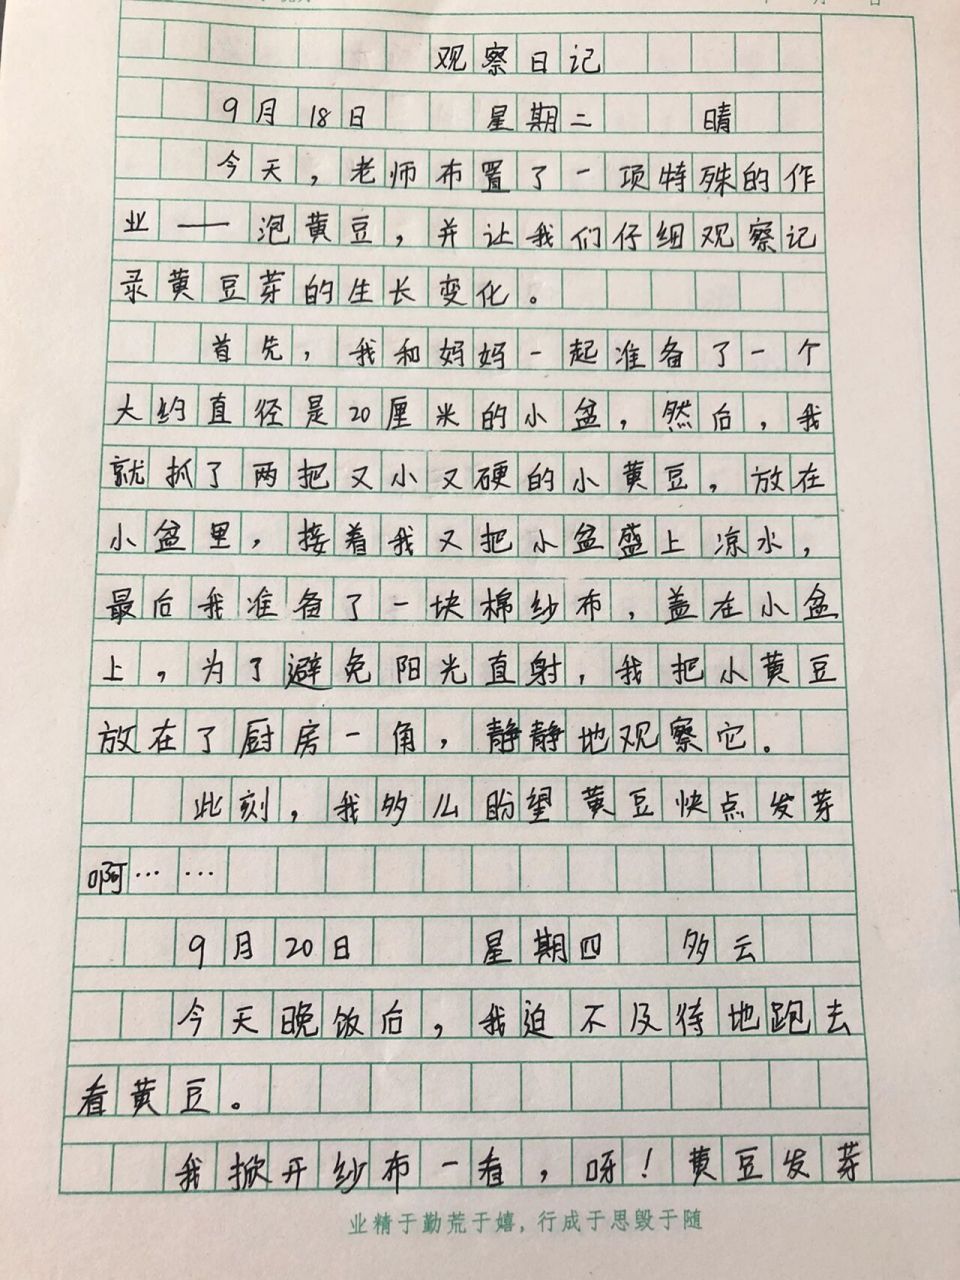 观察日记
9月18日 星期二 晴
今天，老师布置了一项特殊的作
业——泡黄豆，并让我们仔细观察记
录黄豆芽的生长变化。
首先，我和妈妈一起准备了一个
大约直径是20厘米的小盆，然后，我
就抓了两把又小又硬的小黄豆，放在
小盆里，接着我又把小盆盛上凉水，
最后我准备了一块棉纱布，盖在小盆
上，为了避免阳光直射，我把小黄豆
放在了厨房一角，静静地观察它。
此刻，我多么盼望黄豆快点发芽
啊……
9月20日 星期四 多云
今天晚饭后，我迫不及待地跑去
看黄豆。
我掀开纱布一看，呀！黄豆发芽
业精于勤荒于嬉，行成于思毁于随